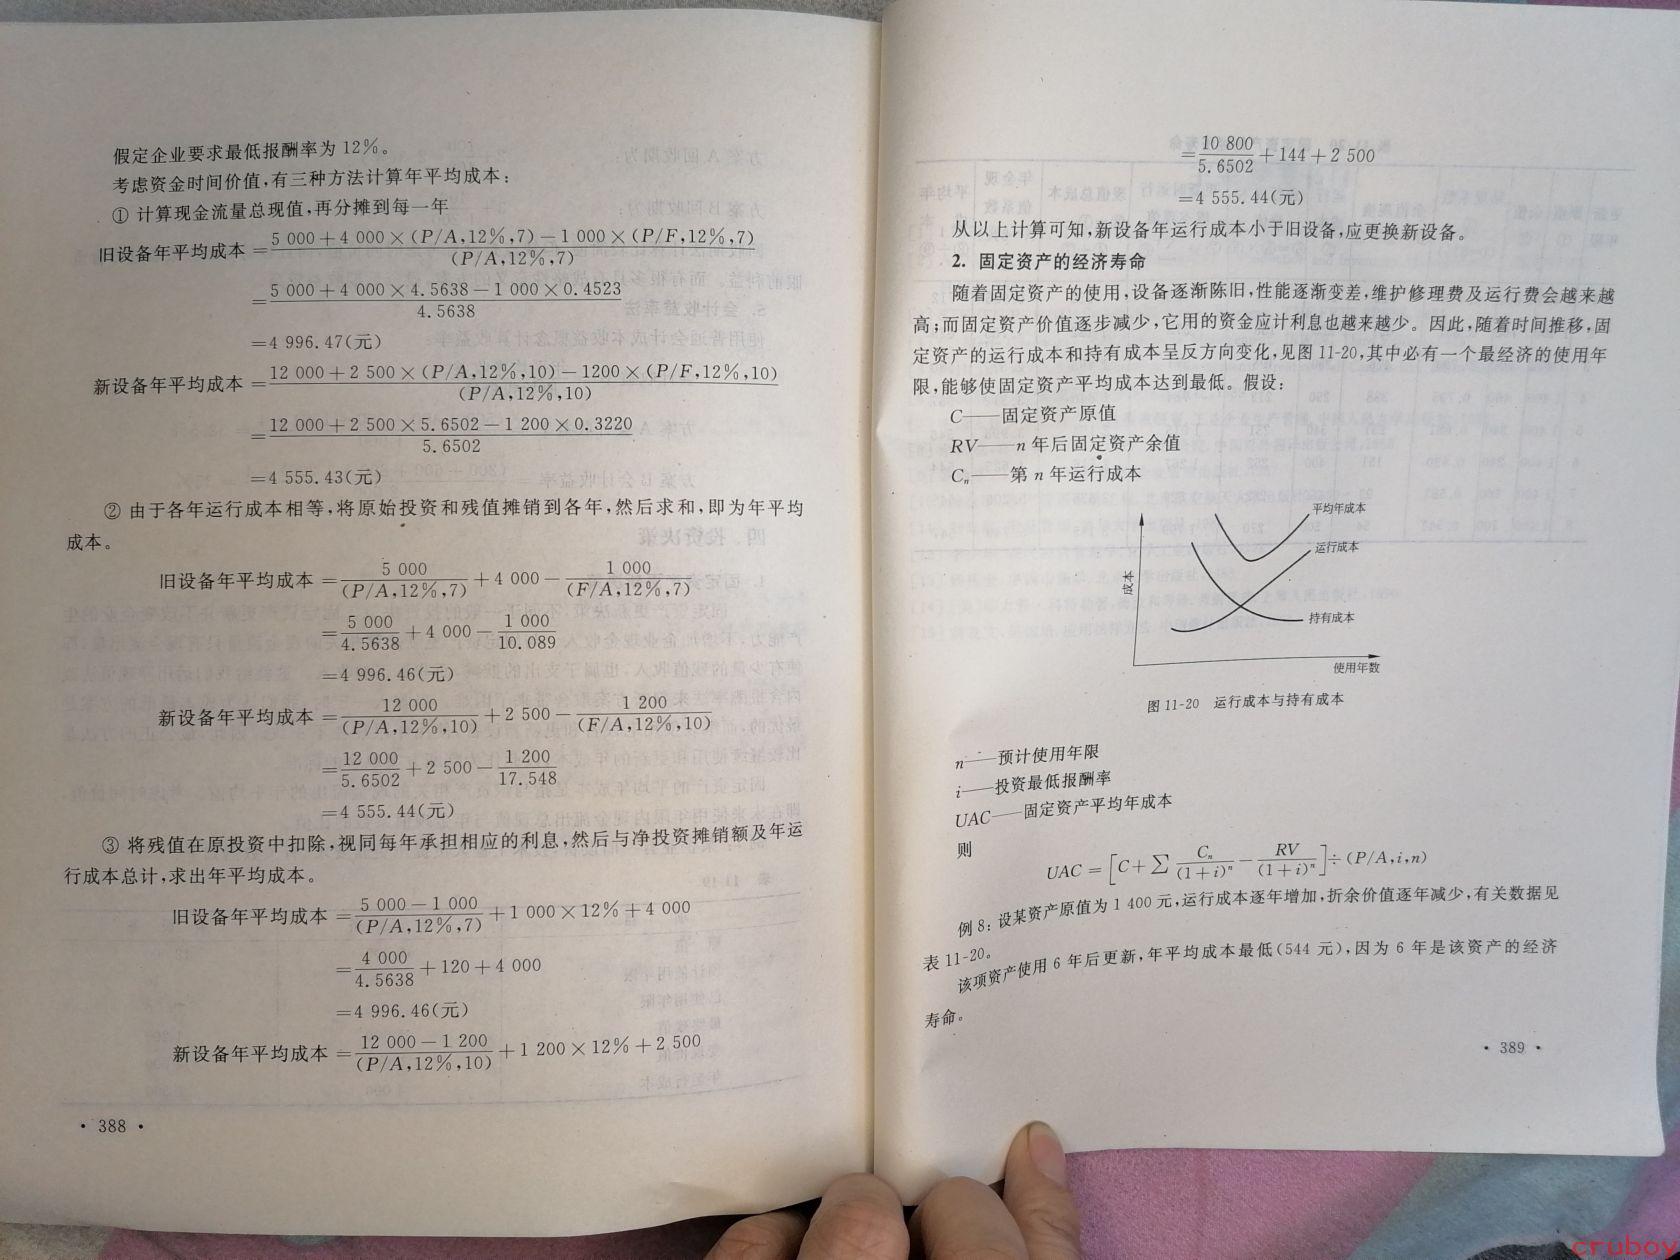 假定企业要求最低报酬率为12%。
考虑资金时间价值,有三种方法计算年平均成本:
① 计算现金流量总现值,再分摊到每一年
旧设备年平均成本 = \frac{5 000+4 000×(P/A,12%,7)-1 000×(P/F,12%,7)}{(P/A,12%,7)}
= \frac{5 000+4 000×4.5638-1 000×0.4523}{4.5638}
=4 996.47(元)
新设备年平均成本 = \frac{12 000+2 500×(P/A,12%,10)-1200×(P/F,12%,10)}{(P/A,12%,10)}
= \frac{12 000+2 500×5.6502-1 200×0.3220}{5.6502}
=4 555.43(元)
② 由于各年运行成本相等,将原始投资和残值摊销到各年,然后求和,即为年平均
成本。
旧设备年平均成本 = \frac{5 000}{(P/A,12%,7)}+4 000-\frac{1 000}{(F/A,12%,7)}
= \frac{5 000}{4.5638}+4 000-\frac{1 000}{10.089}
=4 996.46(元)
新设备年平均成本 = \frac{12 000}{(P/A,12%,10)}+2 500-\frac{1 200}{(F/A,12%,10)}
= \frac{12 000}{5.6502}+2 500-\frac{1 200}{17.548}
=4 555.44(元)
③ 将残值在原投资中扣除,视同每年承担相应的利息,然后与净投资摊销额及年运
行成本总计,求出年平均成本。
旧设备年平均成本 = \frac{5 000-1 000}{(P/A,12%,7)}+1 000×12%+4 000
= \frac{4 000}{4.5638}+120+4 000
=4 996.46(元)
新设备年平均成本 = \frac{12 000-1 200}{(P/A,12%,10)}+1 200×12%+2 500
· 388 ·
= \frac{10 800}{5.6502}+144+2 500
=4 555.44(元)
从以上计算可知,新设备年运行成本小于旧设备,应更换新设备。
2. 固定资产的经济寿命
随着固定资产的使用,设备逐渐陈旧,性能逐渐变差,维护修理费及运行费会越来越
高;而固定资产价值逐步减少,它用的资金应计利息也越来越少。因此,随着时间推移,固
定资产的运行成本和持有成本呈反方向变化,见图11-20,其中必有一个最经济的使用年
限,能够使固定资产平均成本达到最低。假设:
C——固定资产原值
RV——n 年后固定资产余值
Cₙ——第 n 年运行成本
平均年成本
运行成本
成本
持有成本
使用年数
图 11-20 运行成本与持有成本
n——预计使用年限
i——投资最低报酬率
UAC——固定资产平均年成本
则
UAC = [C+∑\frac{Cₙ}{(1+i)ⁿ}-\frac{RV}{(1+i)ⁿ}]÷(P/A,i,n)
例 8: 设某资产原值为 1 400 元,运行成本逐年增加,折余价值逐年减少,有关数据见
表 11-20。
该项资产使用 6 年后更新,年平均成本最低(544 元),因为 6 年是该资产的经济
寿命。
· 389 ·
cruboy